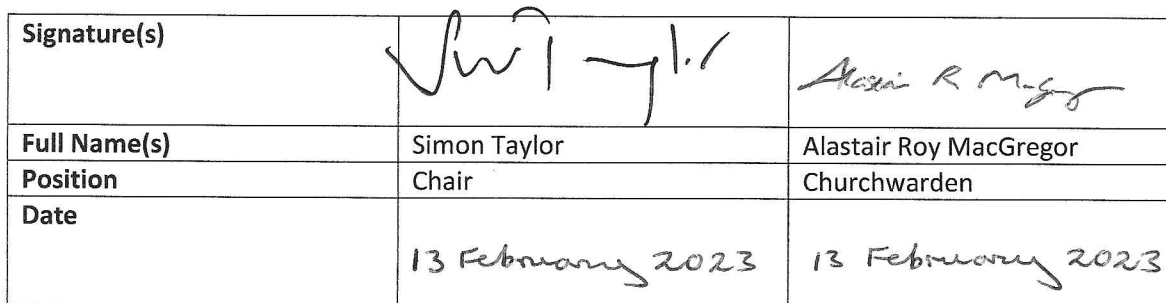 Signature(s) Simon Taylor Alastair R MacGregor
Full Name(s) Simon Taylor Alastair Roy MacGregor
Position Chair Churchwarden
Date 13 February 2023 13 February 2023